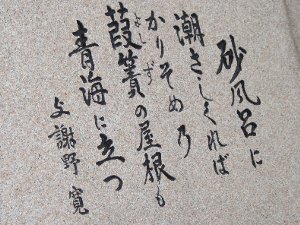 砂風呂に
潮さしくれば
かりそめ乃
葭簀の屋根も
よしず
青海に立つ
与謝野寛